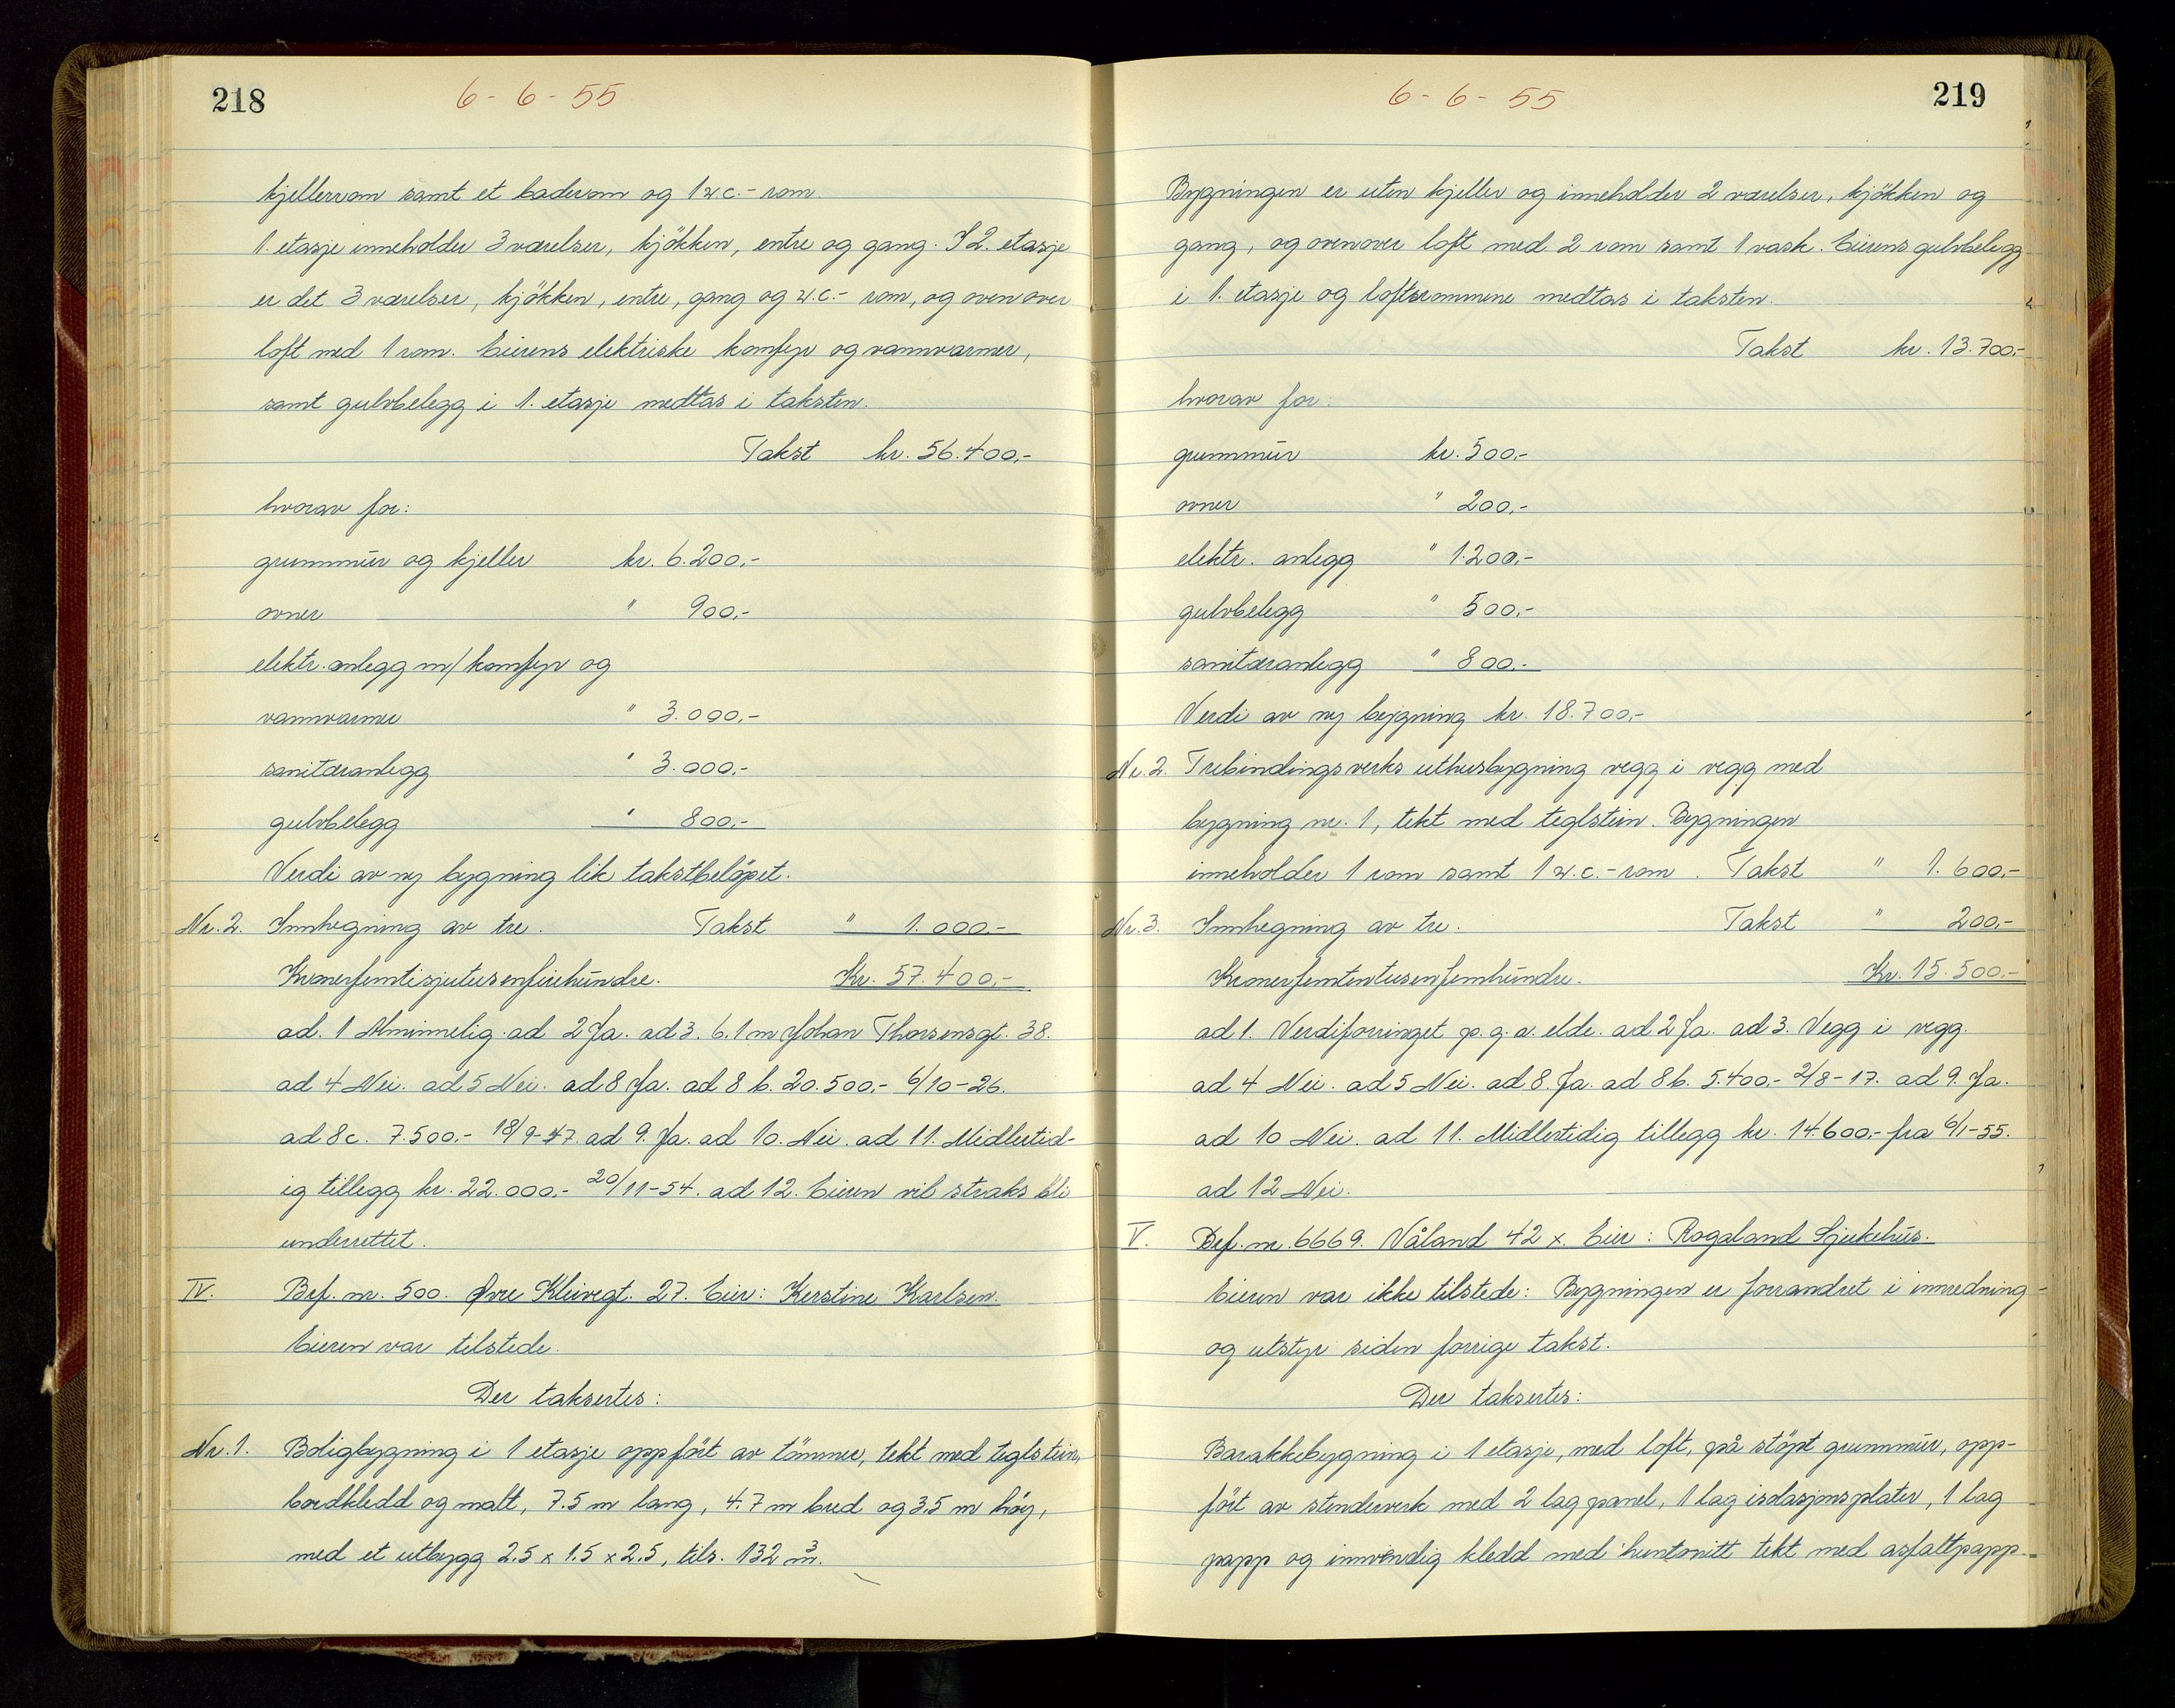 218
6-6-55
kjellerrom samt et baderom og 1 w.c.-rom.
1. etasje inneholder 3 værelser, kjökken, entre og gang. I 2. etasje
er det 3 værelser, kjökken, entre, gang og w.c.- rom, og ovenover
loft med 1 rom. Eierens elektriske komfyr og vannvarmer,
samt gulvbelegg i 1. etasje medtas i taksten.
Takst kr. 56.400,-
hvorav for:
grunnmur og kjeller kr. 6.200,-
ovner " 900,-
elektr. anlegg m/komfyr og
vannvarmer " 3.000,-
sanitæranlegg " 3.000,-
gulvbelegg " 800,-
Verdi av ny bygning lik takstbelöpet.
Nr. 2. Innhegning av tre. Takst " 1.000,-
Kronerfemtisjutusenfirehundre. Kr. 57.400,-
ad. 1 Alminnelig. ad 2 Ja. ad 3. 6.1 m Johan Thorsensgt. 38.
ad 4 Nei. ad 5 Nei. ad 8 Ja. ad 8 b. 20.500,- 6/10-26.
ad 8c. 7.500,- 18/9-47. ad 9. Ja. ad 10. Nei. ad 11. Midlertid-
ig tillegg kr. 22.000,- 20/11-54. ad 12. Eieren vil straks bli
underrettet.
IV. Brf. nr. 500. Øvre Kleivegt. 27. Eier: Kerstine Karlsen.
Eieren var tilstede.
Der taksertes:
Nr. 1. Boligbygning i 1 etasje oppfört av tömmer, tekt med teglstein,
bordkledd og malt, 7.5 m lang, 4.7 m bred og 3.5 m höy,
med et utbygg 2.5 x 1.5 x 2.5, tils. 132 m³.
219
6-6-55
Bygningen er uten kjeller og inneholder 2 værelser, kjökken og
gang, og ovenover loft med 2 rom samt 1 vask. Eierens gulvbelegg
i 1. etasje og loftsrommene medtas i taksten.
Takst kr. 13.700,-
hvorav for:
grunnmur kr. 500,-
ovner " 200,-
elektr. anlegg " 1.200,-
gulvbelegg " 500,-
sanitæranlegg " 800,-
Verdi av ny bygning kr. 18.700,-
Nr. 2. Trebindingsverks uthusbygning vegg i vegg med
bygning nr. 1, tekt med teglstein. Bygningen
inneholder 1 rom samt 1 w.c.-rom. Takst " 1.600,-
Nr. 3. Innhegning av tre. Takst " 200,-
Kronerfemtentusenfemhundre. Kr. 15.500,-
ad 1. Verdiforringet p.g.a. elde. ad 2 Ja. ad 3. Vegg i vegg.
ad 4 Nei. ad 5 Nei. ad 8. Ja. ad 8 b. 5.400,- 2/8-17. ad 9. Ja.
ad 10 Nei. ad 11. Midlertidig tillegg kr. 14.600,- fra 6/1-55.
ad 12 Nei.
V. Brf. nr. 6669. Våland 42 x. Eier: Rogaland Sjukehus.
Eieren var ikke tilstede: Bygningen er forrandret i innredning
og utstyr siden forrige takst.
Der taksertes:
Barakkebygning i 1 etasje, med loft, på stöpt grunnmur, opp-
fört av stenderverk med 2 lag panel, 1 lag isolasjonsplater, 1 lag
papp og innvendig kledd med huntonitt tekt med asfaltpapp.